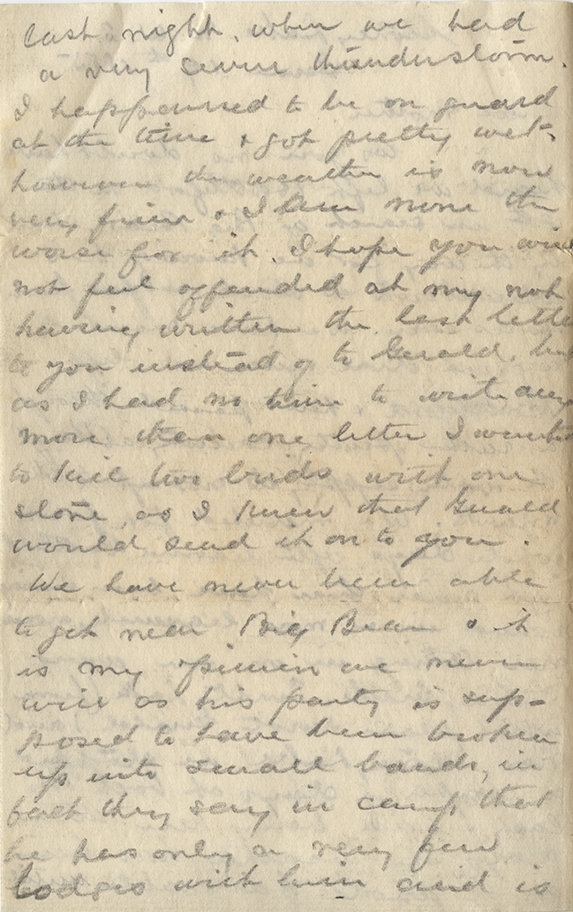 last night, when we had
a very severe thunderstorm.
I happened to be on guard
at the time & got pretty wet,
however the weather is now
very fine & I am none the
worse for it. I hope you will
not feel offended at my not
having written the last letter
to you instead of to Gerald, but
as I had no time to write any
more than one letter I wanted
to kill two birds with one
stone, as I knew that Gerald
would send it on to you.
We have never been able
to get near Big Bear & it
is my opinion we never
will as his party is sup-
posed to have been broken
up into small bands, in
fact they say in camp that
he has only a very few
lodges with him and is